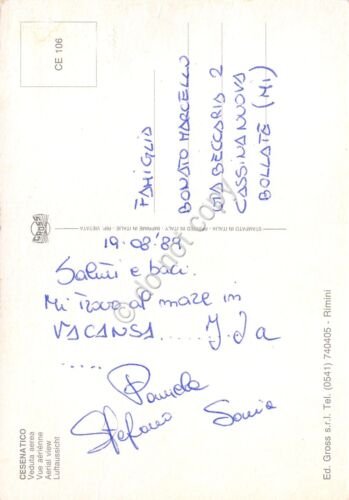 CE 106
FAMIGLIA
BONATO MARCELLO
VIA BECCARIA 2
CASSINA NUOVA
BOLLATE (MI)
GROSS
STAMPATO IN ITALY - PRINTED IN ITALY - IMPRIMÉ EN ITALIE - RIP. VIETATA
19.08'89
Saluti e baci.
Mi trovo al mare in
VACANSA .....
.....
Pamela
Stefano Sonia
CESENATICO
Veduta aerea
Vue aérienne
Aerial view
Luftaussicht
Ed. Gross s.r.l. Tel. (0541) 740405 - Rimini
do not copy